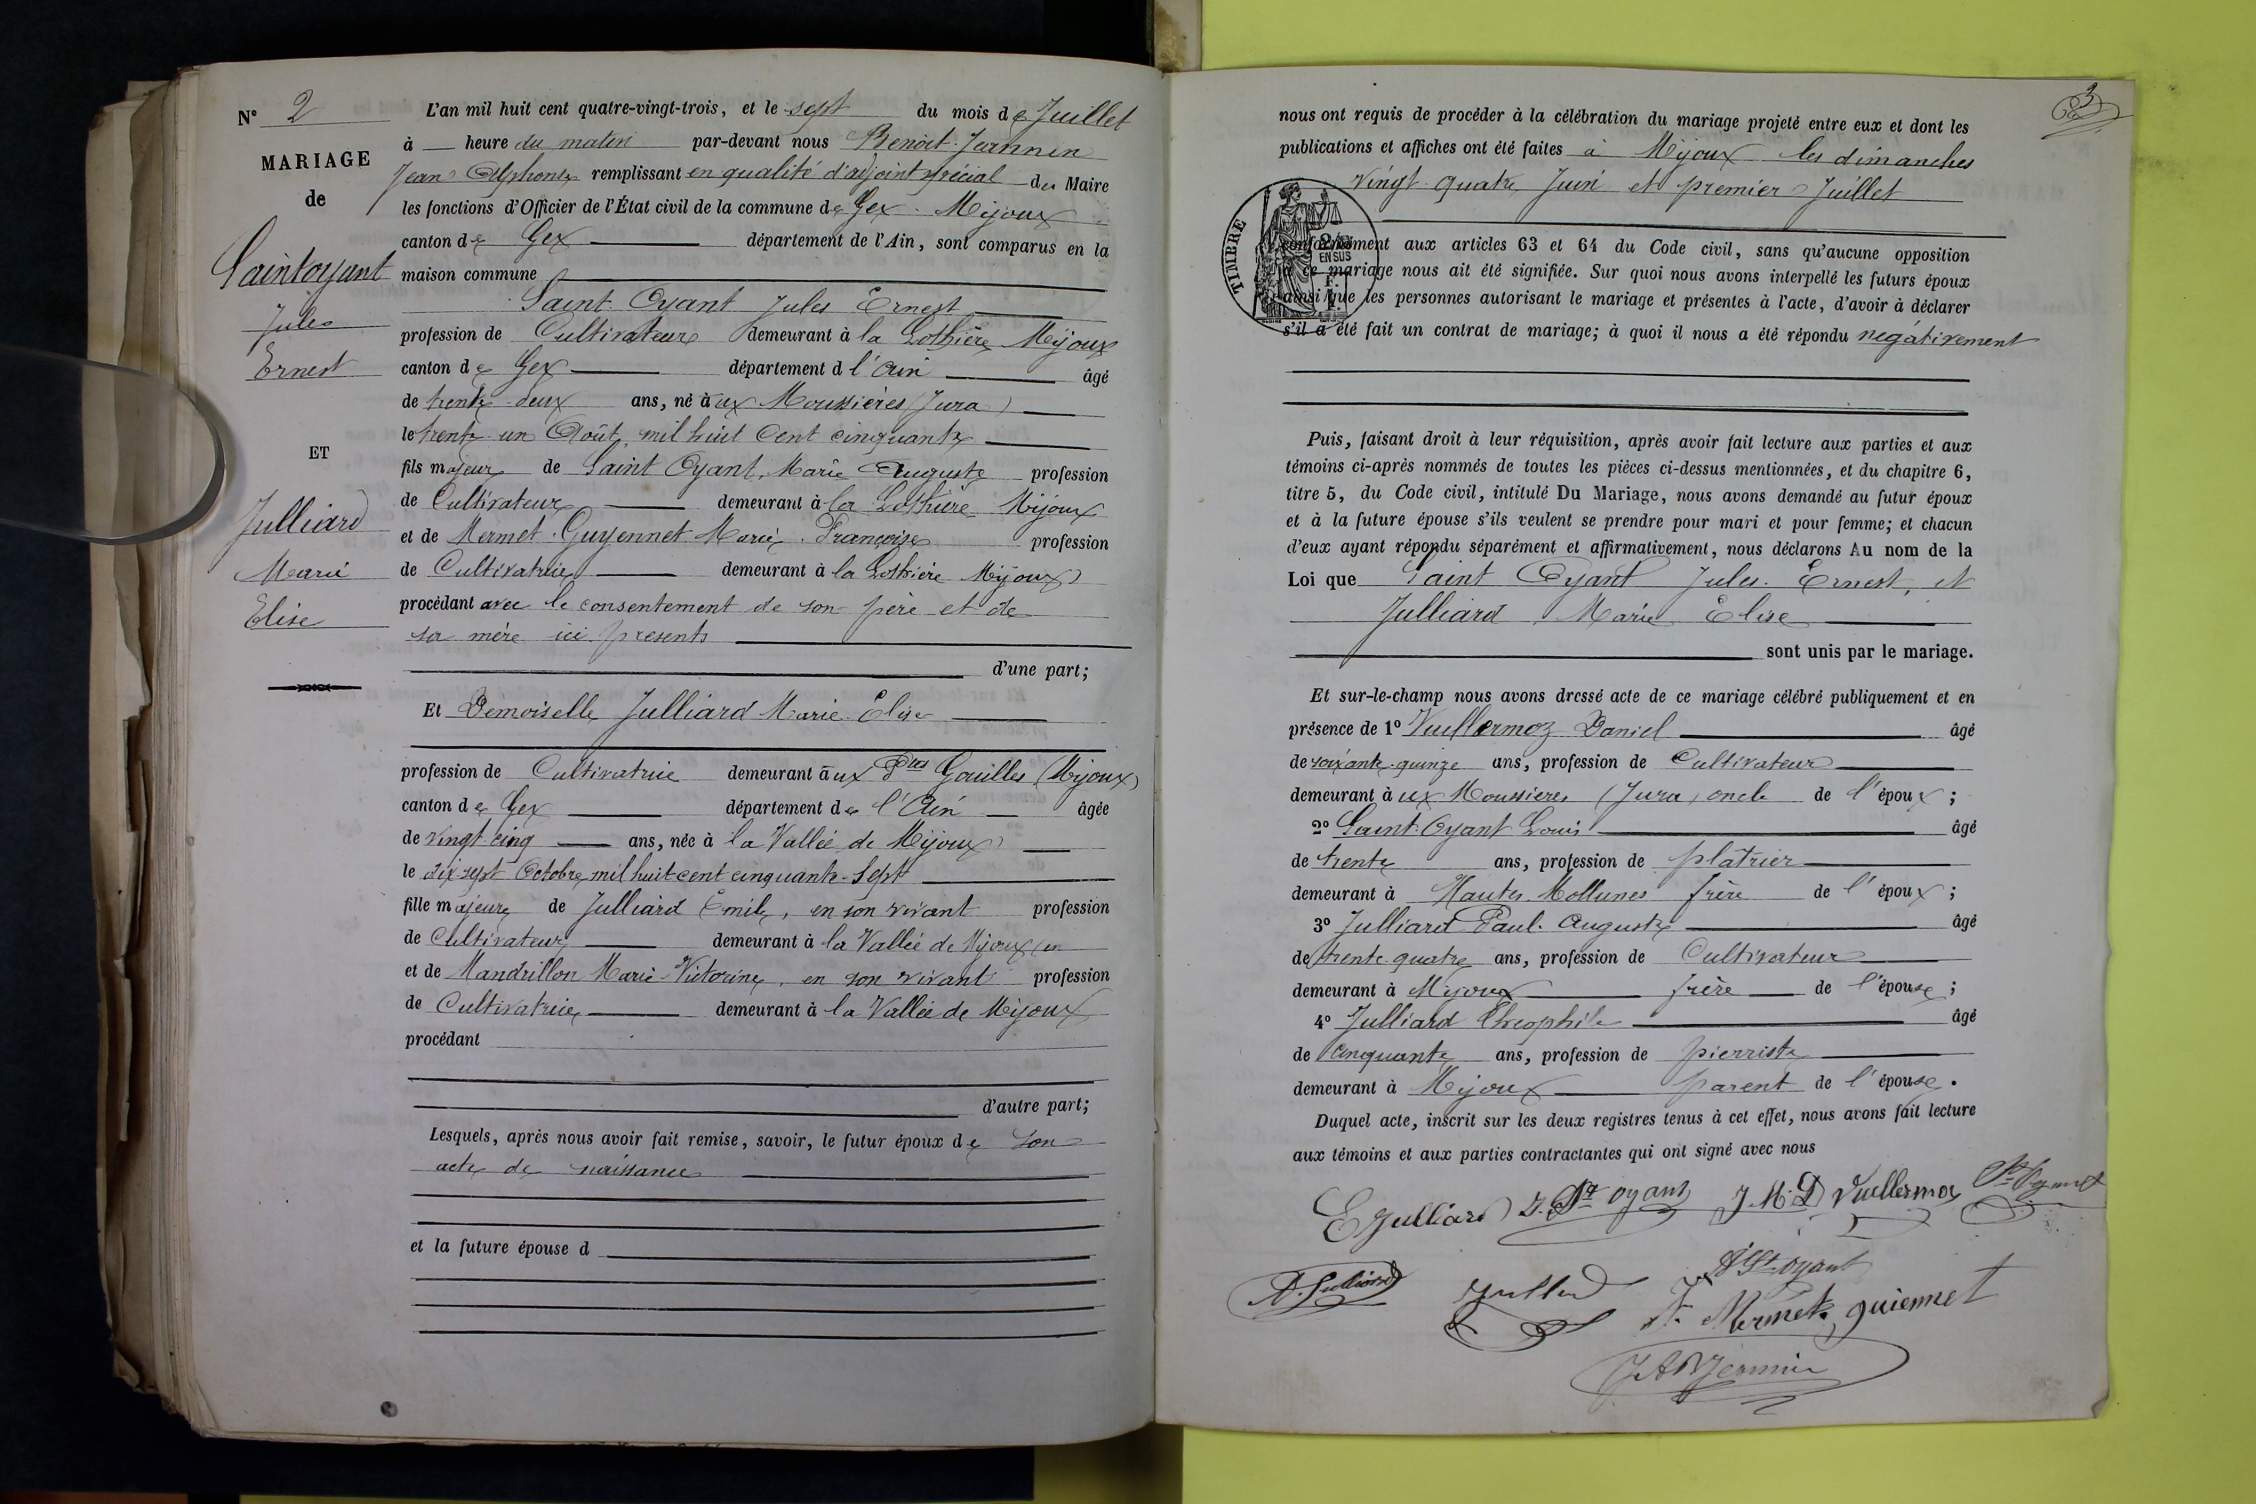 N° 2
MARIAGE
de
Saintoyant
Jules
Ernest
ET
Julliard
Marie
Elise
L'an mil huit cent quatre-vingt-trois, et le sept du mois de Juillet
à — heure du matin par-devant nous Benoit-Jeannin
Jean Alphonse remplissant en qualité d'adjoint spécial du Maire
les fonctions d'Officier de l'État civil de la commune de Gex - Mijoux
canton de Gex département de l'Ain, sont comparus en la
maison commune
Saint-Oyant Jules Ernest
profession de Cultivateur demeurant à la Lothière Mijoux
canton de Gex département d l'Ain âgé
de trente-deux ans, né à ux Moussières (Jura)
le trente un Août mil huit cent cinquante
fils majeur de Saint Oyant, Marie Auguste profession
de Cultivateur demeurant à la Lothière Mijoux
et de Mermet-Guyennet Marie-Françoise profession
de Cultivatrice demeurant à la Lothière Mijoux
procédant avec le consentement de son père et de
sa mère ici présents
d'une part;
Et Demoiselle Julliard Marie-Elise
profession de Cultivatrice demeurant à ux Ptes Gouilles (Mijoux)
canton de Gex département de l'Ain âgée
de vingt-cinq ans, née à la Vallée de Mijoux
le dix sept Octobre mil huit cent cinquante-sept
fille majeure de Julliard Emile, en son vivant profession
de Cultivateur demeurant à la Vallée de Mijoux
et de Mandrillon Marie-Victorine, en son vivant profession
de Cultivatrice demeurant à la Vallée de Mijoux
procédant
d'autre part;
Lesquels, après nous avoir fait remise, savoir, le futur époux de son
acte de naissance
et la future épouse d
3
nous ont requis de procéder à la célébration du mariage projeté entre eux et dont les
publications et affiches ont été faites à Mijoux les dimanches
vingt-quatre Juin et premier Juillet
TIMBRE
2/10
EN SUS
conformément aux articles 63 et 64 du Code civil, sans qu'aucune opposition
à ce mariage nous ait été signifiée. Sur quoi nous avons interpellé les futurs époux
ainsi que les personnes autorisant le mariage et présentes à l'acte, d'avoir à déclarer
s'il a été fait un contrat de mariage; à quoi il nous a été répondu negativement
Puis, faisant droit à leur réquisition, après avoir fait lecture aux parties et aux
témoins ci-après nommés de toutes les pièces ci-dessus mentionnées, et du chapitre 6,
titre 5, du Code civil, intitulé Du Mariage, nous avons demandé au futur époux
et à la future épouse s'ils veulent se prendre pour mari et pour femme; et chacun
d'eux ayant répondu séparément et affirmativement, nous déclarons Au nom de la
Loi que Saint Oyant Jules-Ernest, et
Julliard Marie Elise
sont unis par le mariage.
Et sur-le-champ nous avons dressé acte de ce mariage célébré publiquement et en
présence de 1° Vuillermoz Daniel âgé
de soixante-quinze ans, profession de Cultivateur
demeurant à ux Moussières (Jura) oncle de l'époux;
2° Saint-Oyant Louis âgé
de trente ans, profession de plâtrier
demeurant à Hautes Mollunes frère de l'époux;
3° Julliard Paul-Auguste âgé
de trente-quatre ans, profession de Cultivateur
demeurant à Mijoux frère de l'épouse;
4° Julliard Théophile âgé
de cinquante ans, profession de pierriste
demeurant à Mijoux parent de l'épouse.
Duquel acte, inscrit sur les deux registres tenus à cet effet, nous avons fait lecture
aux témoins et aux parties contractantes qui ont signé avec nous
E Julliard J. St oyant J. M. D Vuillermoz St-Oyant
A. Julliard Julliard A St-oyant
F. Mermet guiennet
J A B Jeannin